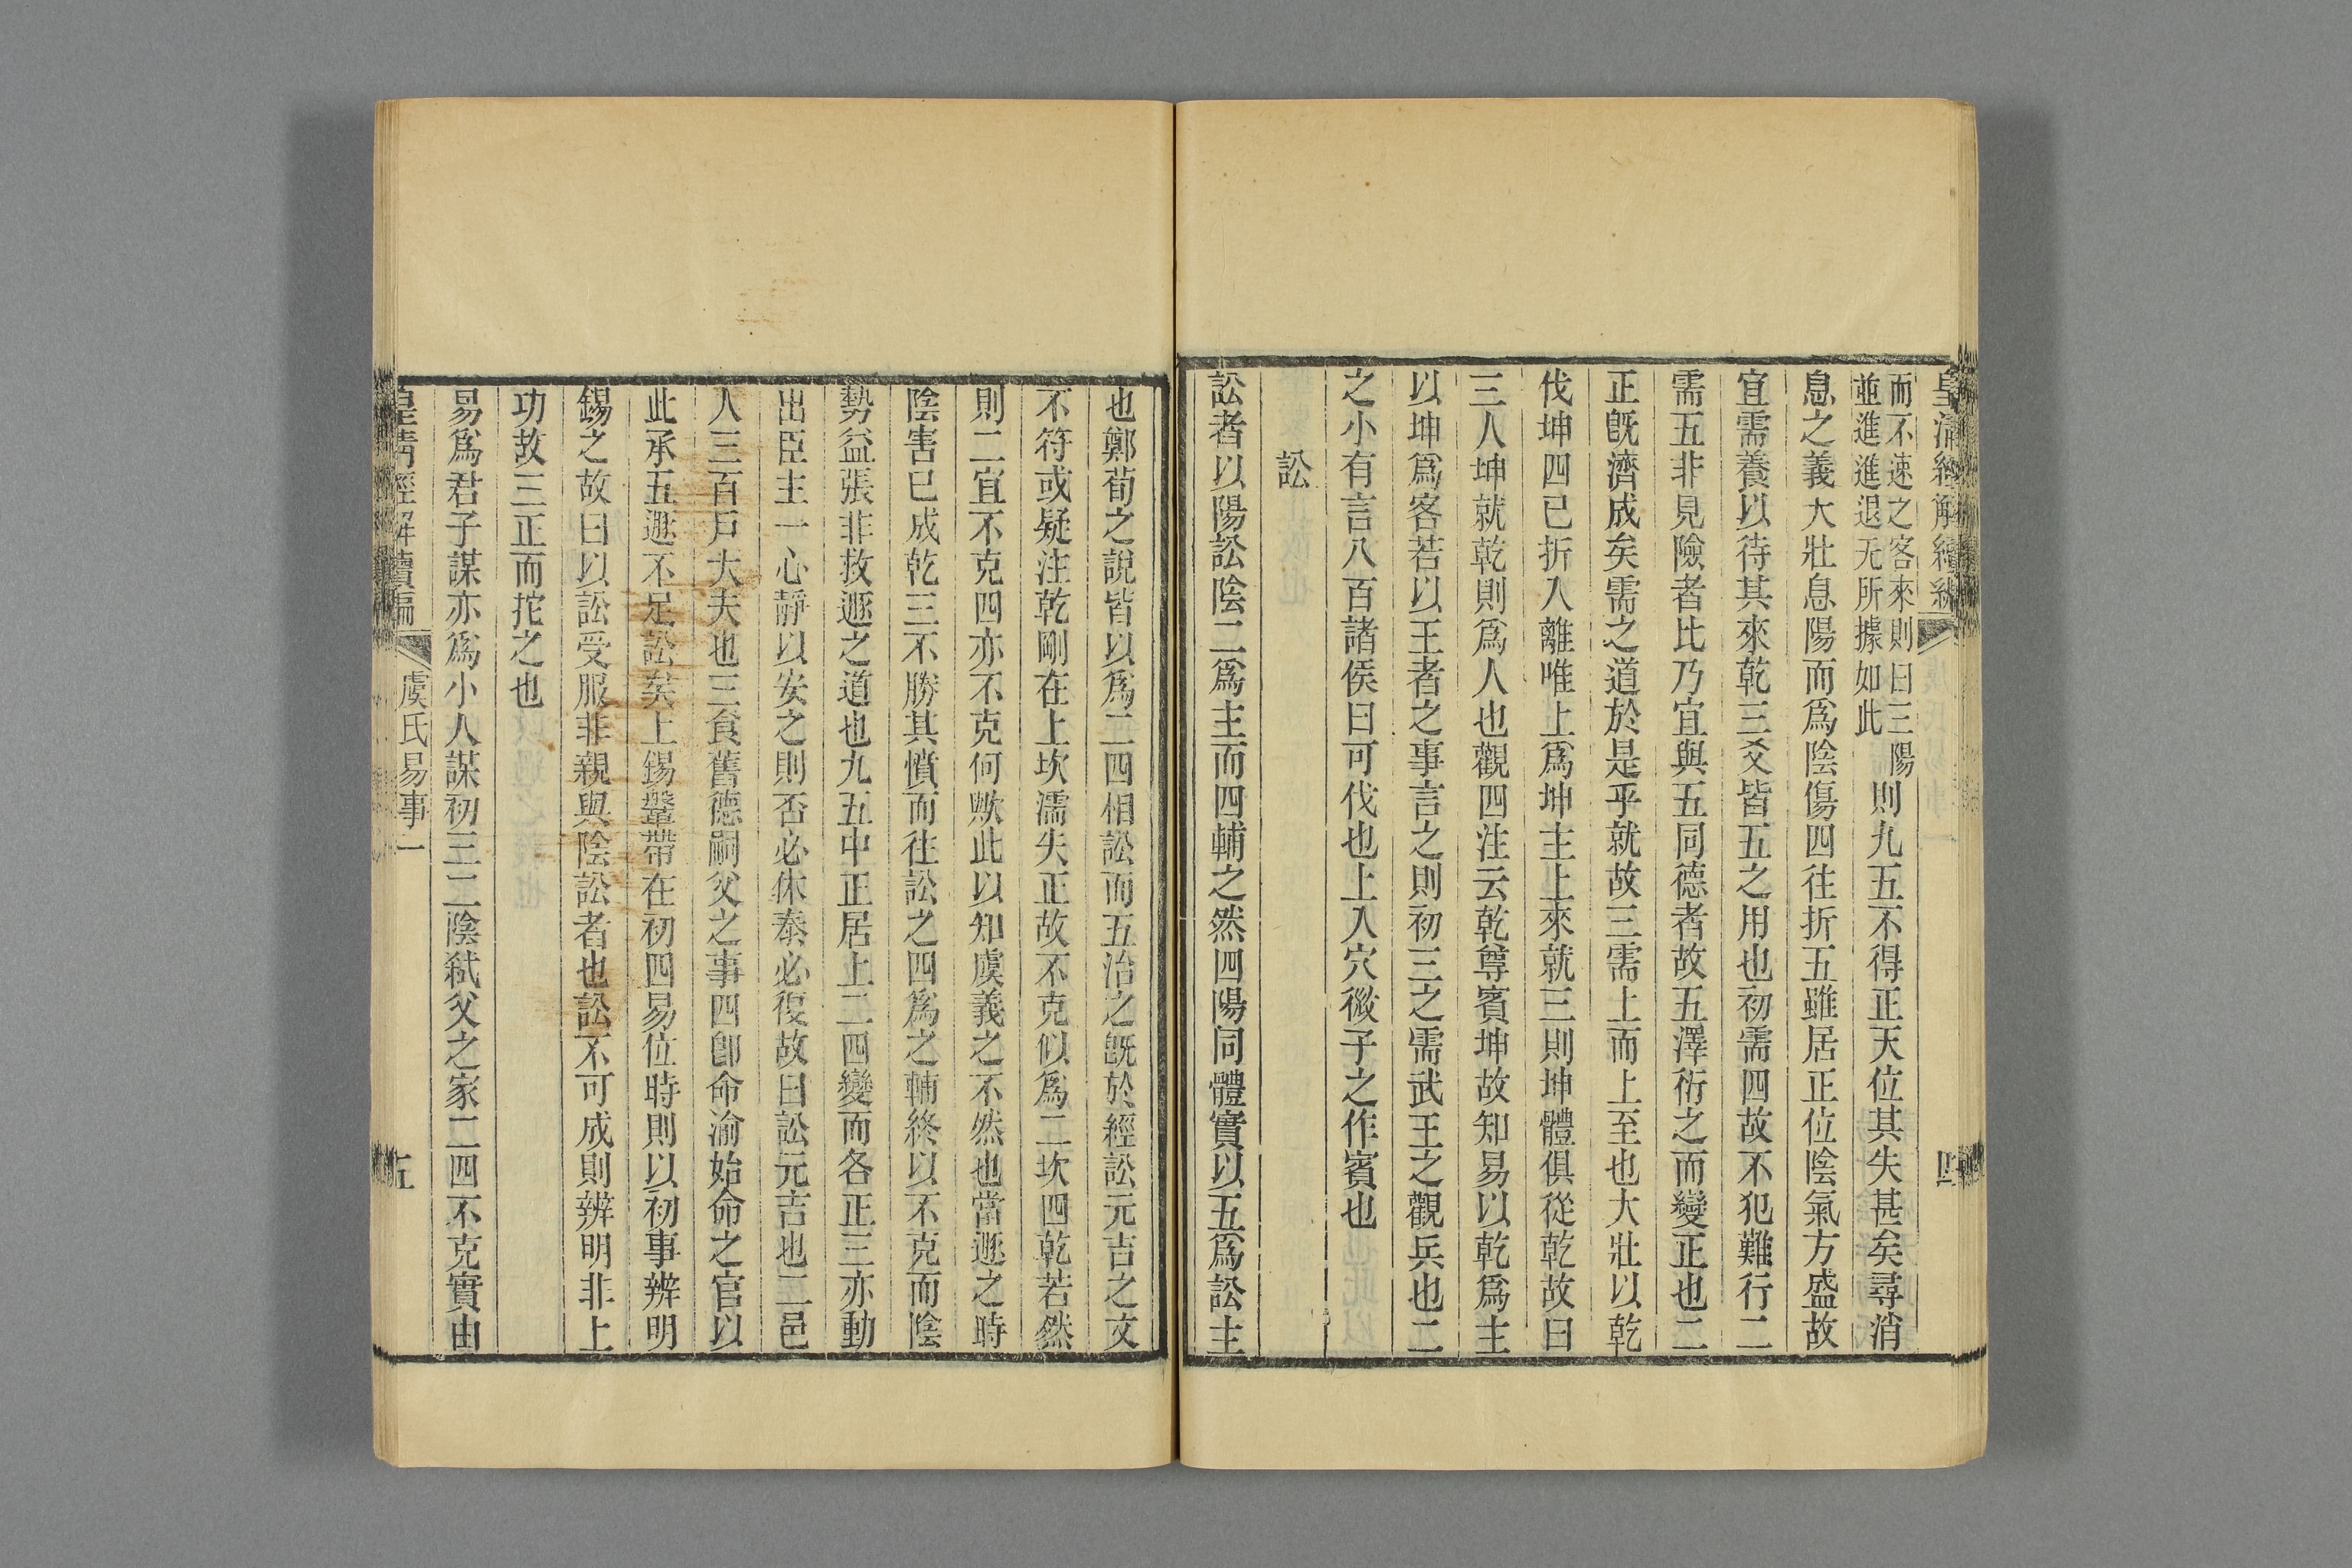 皇清經解續編
四
而不速之客來則曰三陽
並進進退无所據如此
則九五不得正天位其失甚矣尋消
息之義大壯息陽而爲陰傷四往折五雖居正位陰氣方盛故
宜需養以待其來乾三爻皆五之用也初需四故不犯難行二
需五非見險者比乃宜與五同德者故五澤衍之而變正也二
正既濟成矣需之道於是乎就故三需上而上至也大壯以乾
伐坤四已折入離唯上爲坤主上來就三則坤體俱從乾故曰
三人坤就乾則爲人也觀四注云乾尊賓坤故知易以乾爲主
以坤爲客若以王者之事言之則初三之需武王之觀兵也二
之小有言八百諸侯曰可伐也上入穴微子之作賓也
訟
訟者以陽訟陰二爲主而四輔之然四陽同體實以五爲訟主
也鄭荀之說皆以爲二四相訟而五治之既於經訟元吉之文
不符或疑注乾剛在上坎濡失正故不克似爲二坎四乾若然
則二宜不克四亦不克何歟此以知虞義之不然也當遯之時
陰害已成乾三不勝其憤而往訟之四爲之輔終以不克而陰
勢益張非救遯之道也九五中正居上二四變而各正三亦動
出臣主一心靜以安之則否必休泰必復故曰訟元吉也二邑
人三百戶大夫也三食舊德嗣父之事四卽命渝始命之官以
此承五遯不足訟矣上錫鞶帶在初四易位時則以初事辨明
錫之故曰以訟受服非親與陰訟者也訟不可成則辨明非上
功故三正而拕之也
易爲君子謀亦爲小人謀初三二陰弒父之家二四不克實由
皇清經解續編
虞氏易事一
五